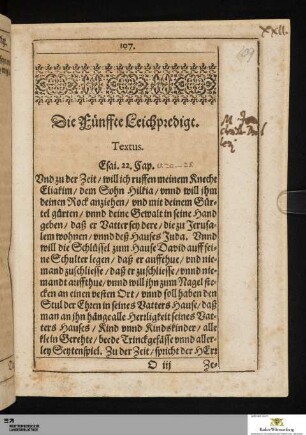 XXII.
107.
109
Die Fünffte Leichpredigt.
Textus.
Esai. 22. Cap.
Vnd zu der Zeit / will ich ruffen meinem Knecht
Eliakim / dem Sohn Hilkia / vnnd will ihm
deinen Rock anziehen / vnd mit deinem Gür-
tel gürten / vnnd deine Gewalt in seine Hand
geben / daß er Vatter sey dere / die zu Jerusa-
lem wohnen / vnnd deß Hauses Juda. Vnnd
will die Schlüssel zum Hause David auff sei-
ne Schulter legen / daß er auffthue / vnd nie-
mand zuschliesse / daß er zuschliesse / vnnd nie-
mandt auffthue / vnnd will ihn zum Nagel ste-
cken an einen vesten Ort / vnnd soll haben den
Stul der Ehren in seines Vatters Hause / daß
man an ihn hänge alle Herrligkeit seines Vat-
ters Hauses / Kind vnnd Kindskinder / alle
klein Gerethe / beede Trinckgefässe vnnd aller-
ley Seytenspiel. Zu der Zeit / spricht der HErr
O iij
Ze-
Baden-Württemberg